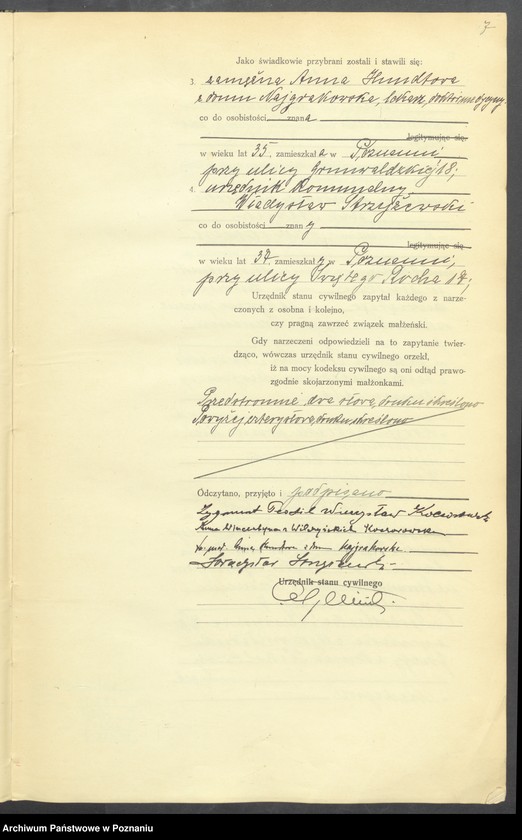 7
Jako świadkowie przybrani zostali i stawili się:
3. zamężna Anna Hundtowa
z domu Najgrakowska, lekarz, doktór medycyny
co do osobistości znana
legitymując się
w wieku lat 35, zamieszkała w Poznaniu,
przy ulicy Grunwaldzkiej 18;
4. urzędnik komunalny
Władysław Strzyżewski
co do osobistości znany
legitymując się
w wieku lat 37, zamieszkały w Poznaniu,
przy ulicy Świętego Rocha
Urzędnik stanu cywilnego zapytał każdego z narze-
czonych z osobna i kolejno,
czy pragną zawrzeć związek małżeński.
Gdy narzeczeni odpowiedzieli na to zapytanie twier-
dząco, wówczas urzędnik stanu cywilnego orzekł,
iż na mocy kodeksu cywilnego są oni odtąd prawo-
zgodnie skojarzonymi małżonkami.
Przedstronnie dwa słowa druku skreślono
Powyżej cztery słowa druku skreślono
Odczytano, przyjęto i podpisano
Zygmunt Wieczysław
Anna Wincentyna z
Dr. med. Anna z domu Najgrakowska
Władysław Strzyżewski
Urzędnik stanu cywilnego
Archiwum Państwowe w Poznaniu